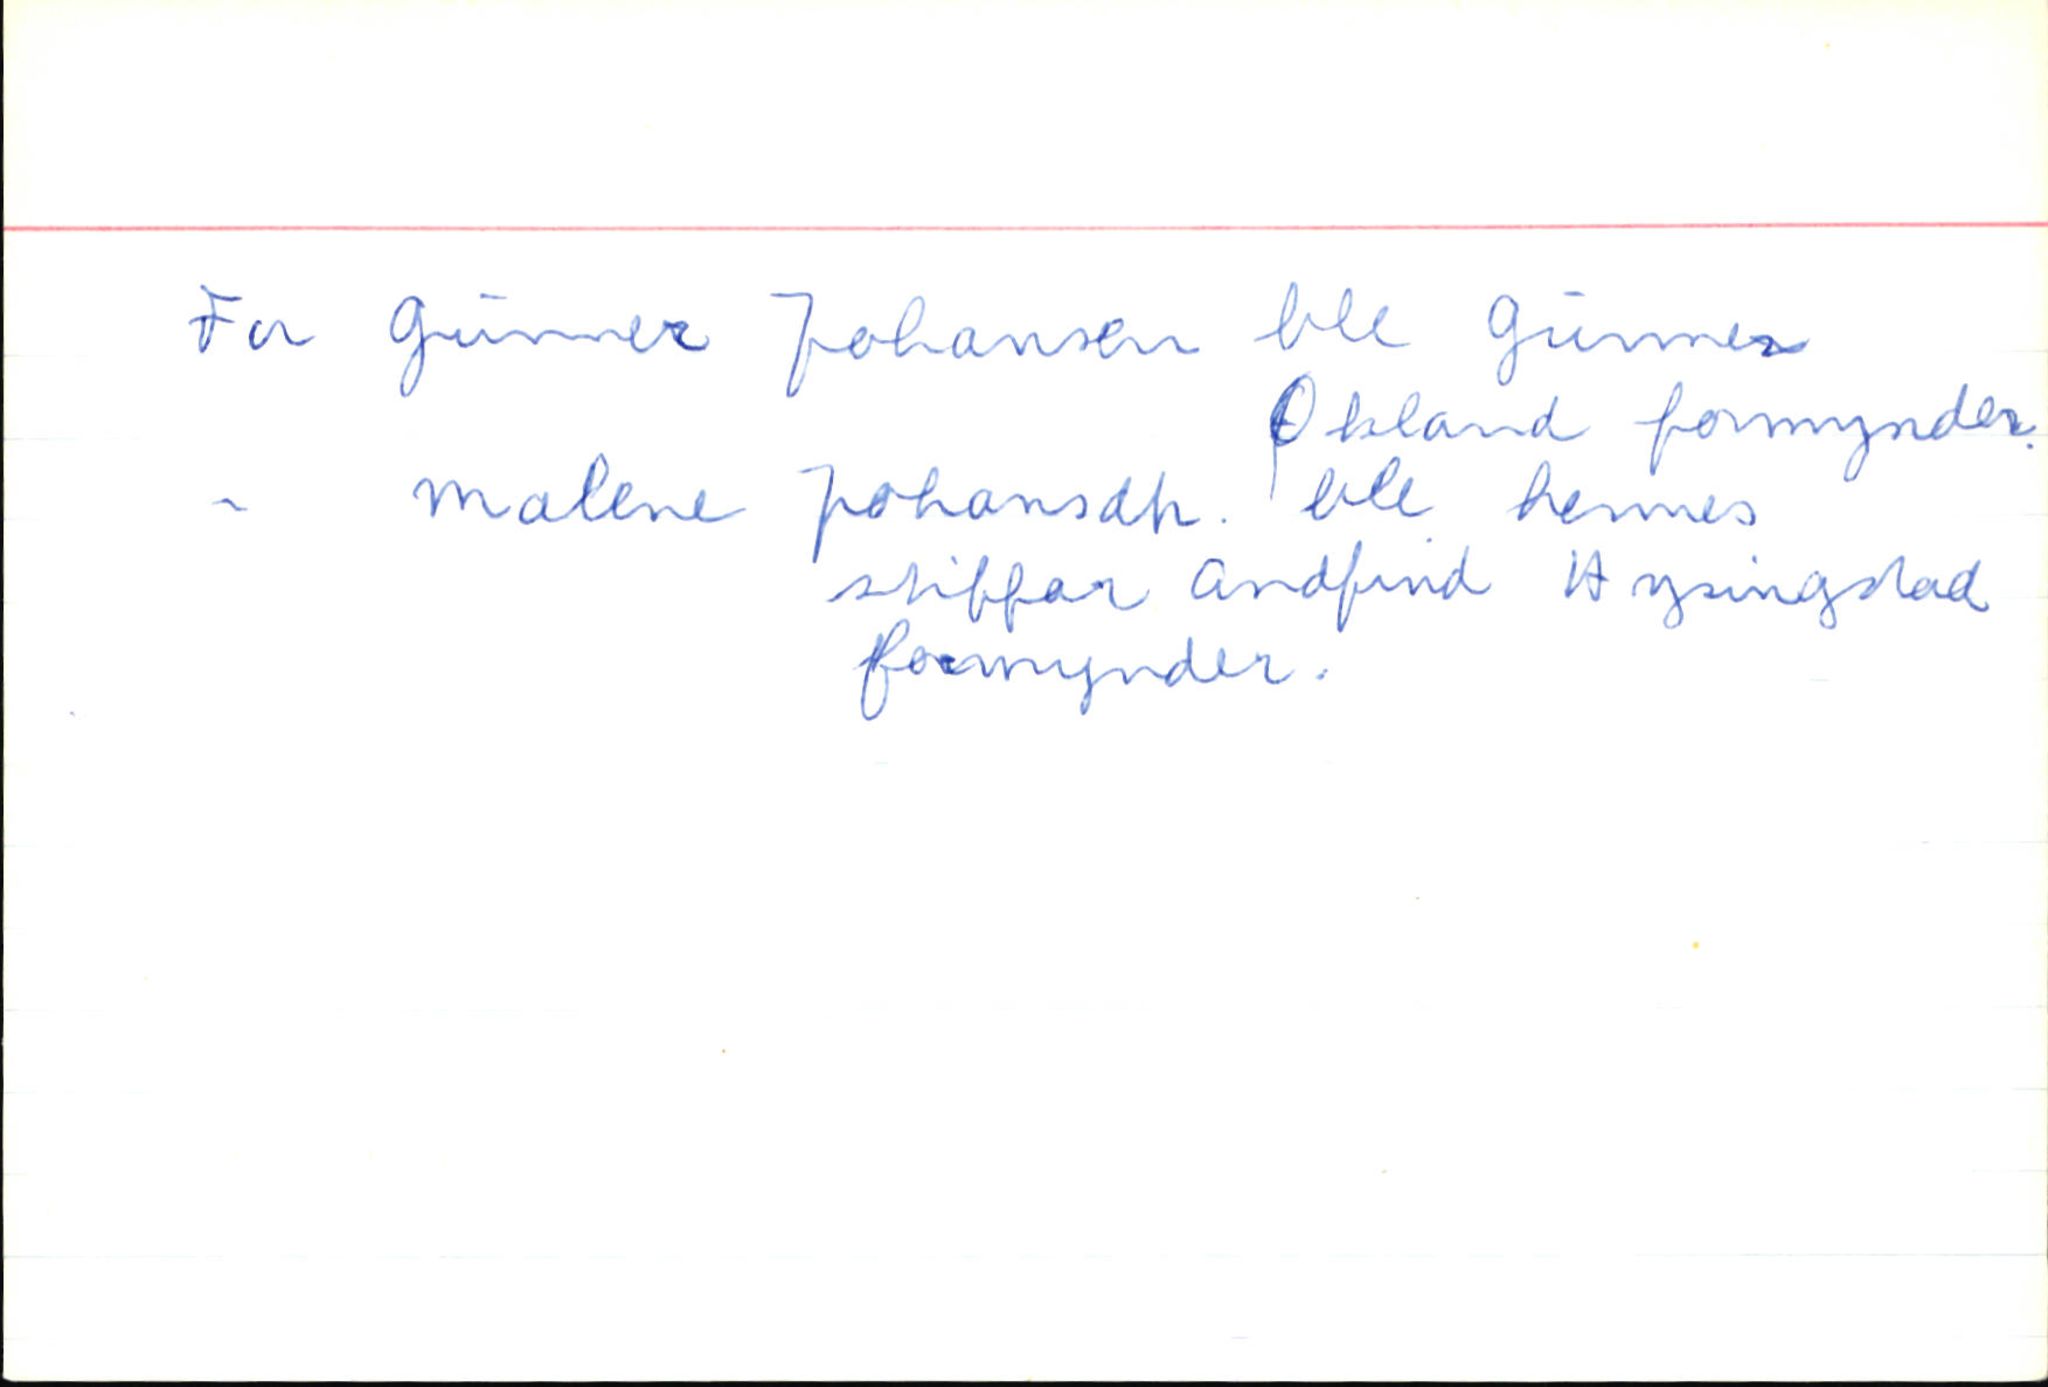 For Gunner Johansen ble Gunner
Økland formynder.
" Malene Johansdtr. ble hennes
stiffar Andfind Hysingstad
formynder.